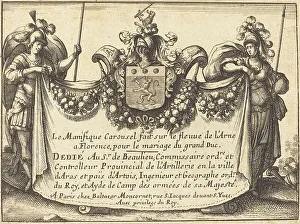 Le Manifique Carousel fait sur le fleuve de L'Arne
a Florence, pour le mariage du grand Duc.
DEDIE Au Sr. de Beaulieu, Commissaire ordre. et
Controlleur Provincial de L'Artillerie en la ville
d'Aras et pais d'Artois, Ingenieur et Geographe ordre.
du Roy, et Ayde de Camp des armées de sa Majesté.
A Paris chez Baltazar Moncornet rue S. Jacques devant S. Yues.
Avec privilege du Roy.